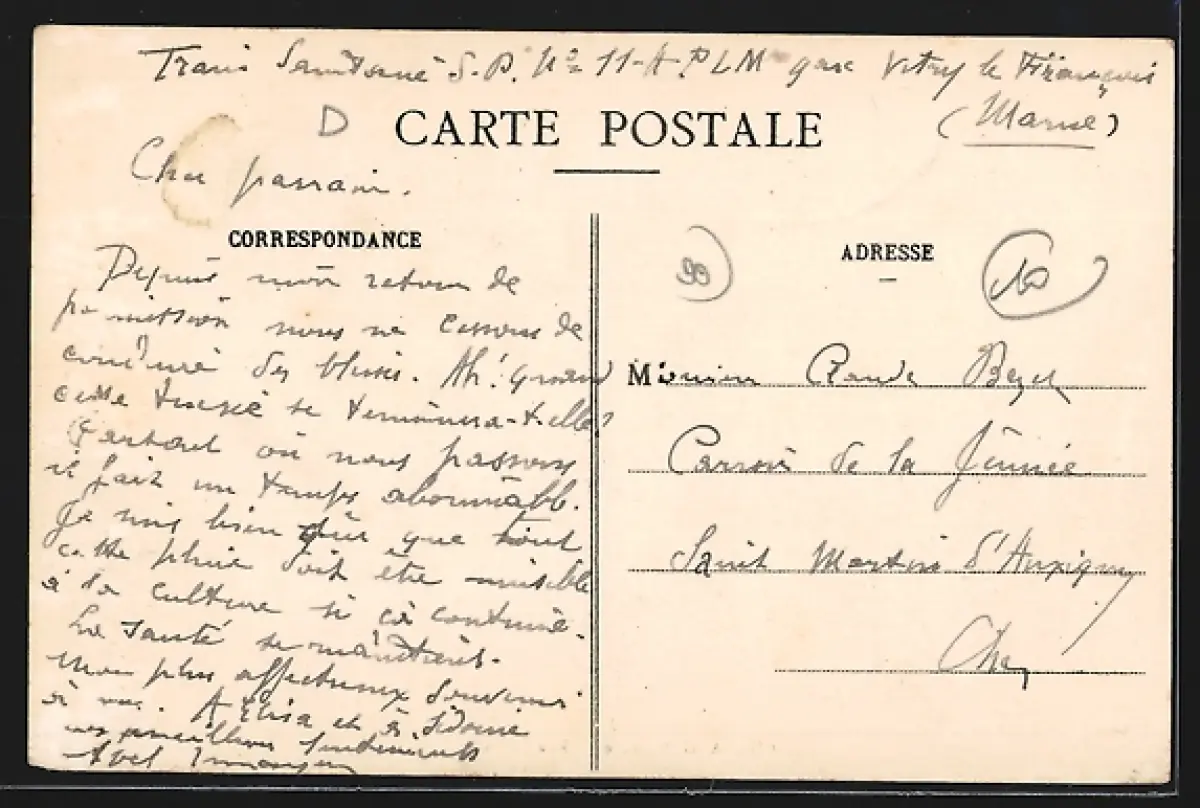 Train Sanitaire S.P. No 11-A-PLM gare Vitry le François
(Marne)
D
CARTE POSTALE
Cher parrain.
CORRESPONDANCE
Depuis mon retour de
permission nous ne cessons de
conduire des blessés. Ah! quand
cette tuerie se terminera-t-elle?
Partout où nous passons
il fait un temps abominable.
Je suis bien sûr que tout
cette pluie doit être nuisible
à la culture si ça continue.
La santé se maintient.
Mon plus affectueux souvenir
à vous. A Elisa et à Sidonie
mes meilleurs sentiments
Abel
ADRESSE
Monsieur Claude
Carroir de la
Saint Martin d'Auxigny
Cher